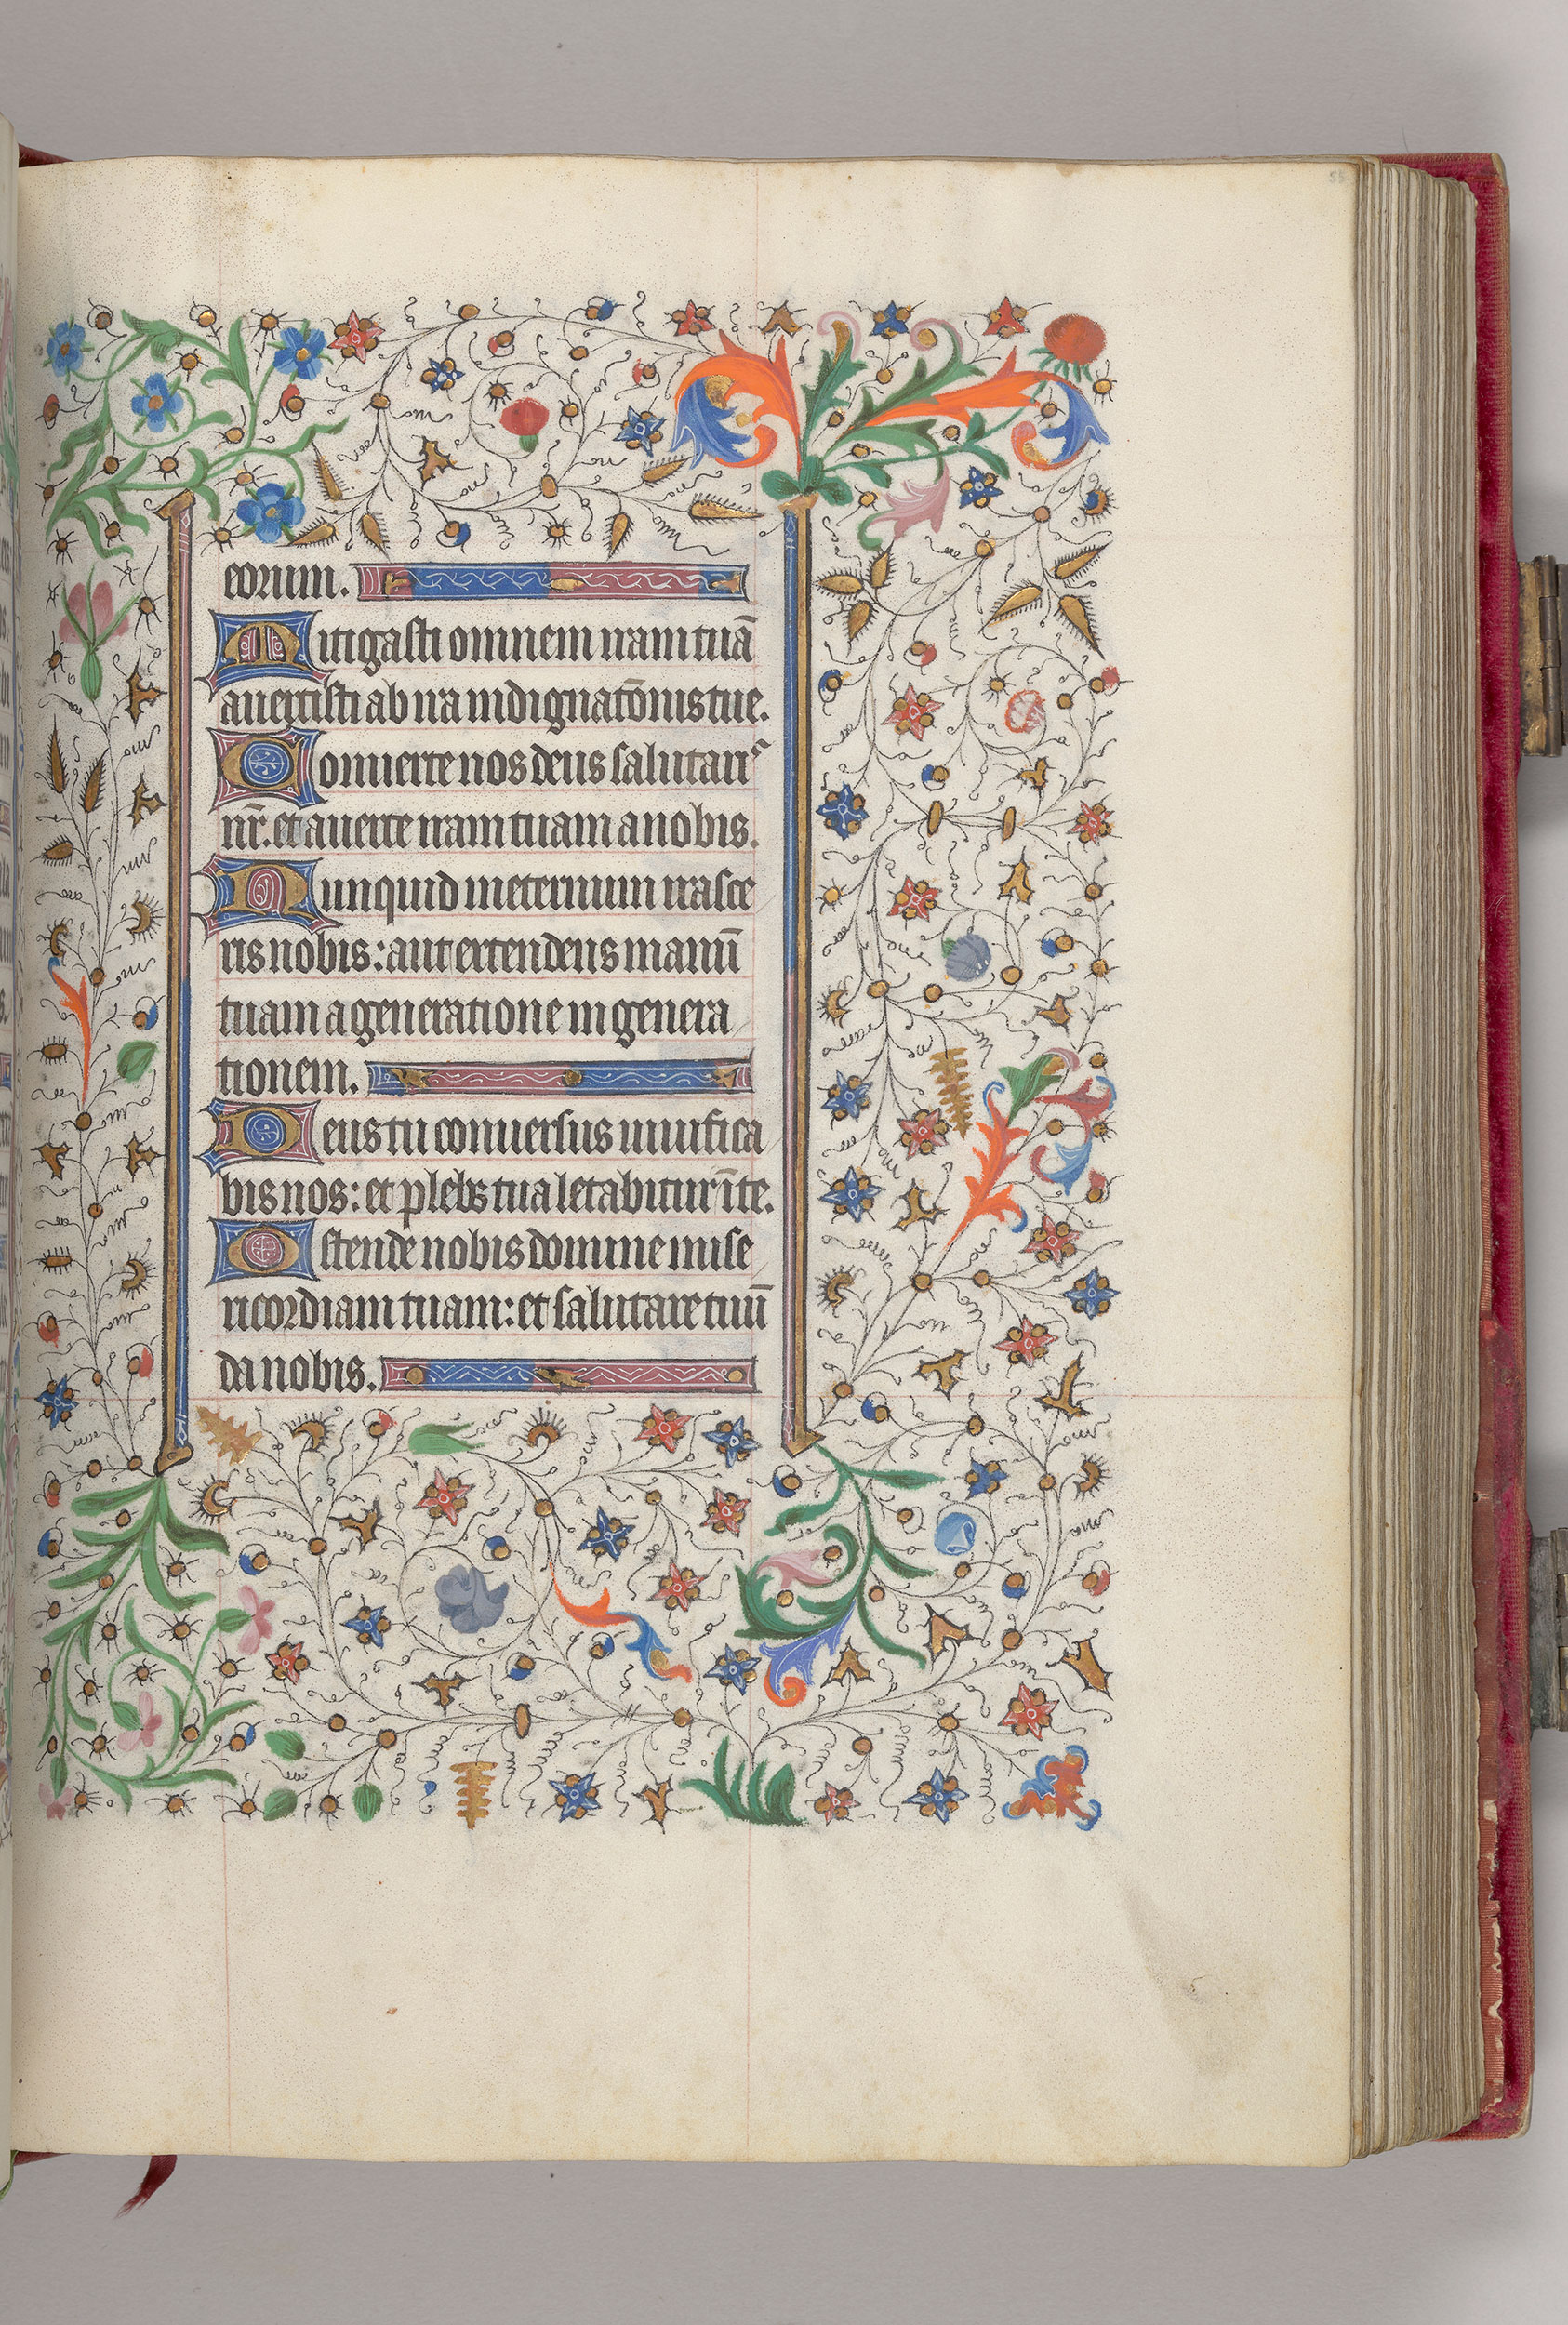 eorum.
Mitigasti omnem iram tuā
auertisti ab ira indignatōnis tue.
Conuerte nos deus salutaris
nr̄. et auerte iram tuam a nobis.
Nunquid ineternum irasce
ris nobis: aut extendens manū
tuam a generatione in genera
tionem.
Deus tu conuersus uiuifica
bis nos: et plebs tua letabitur ī te.
Ostende nobis domine mise
ricordiam tuam: et salutare tuū
da nobis.